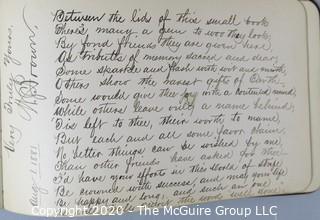 Between the lids of this small book
There's many a gem to woo thy look;
By fond friends they are given here,
As tributes of memory sacred and dear;
Some sparkle and flash with wit and mirth,
Others show the rarest gifts of Earth
Some would give thee joy with a borrowed mind,
While others leave only a name behind;
'Tis left to thee, their worth to name,
But each and all some favor claim,
No better things can be wished by me
Than other friends have asked for thee
I'd have your efforts in the World of strife
Be crowned with success, and may your life
Be happy and long, and such an one
the words well done
Very Truly Yours,
Brown.
Aug
Copyright ©2020 - The McGuire Group, LLC